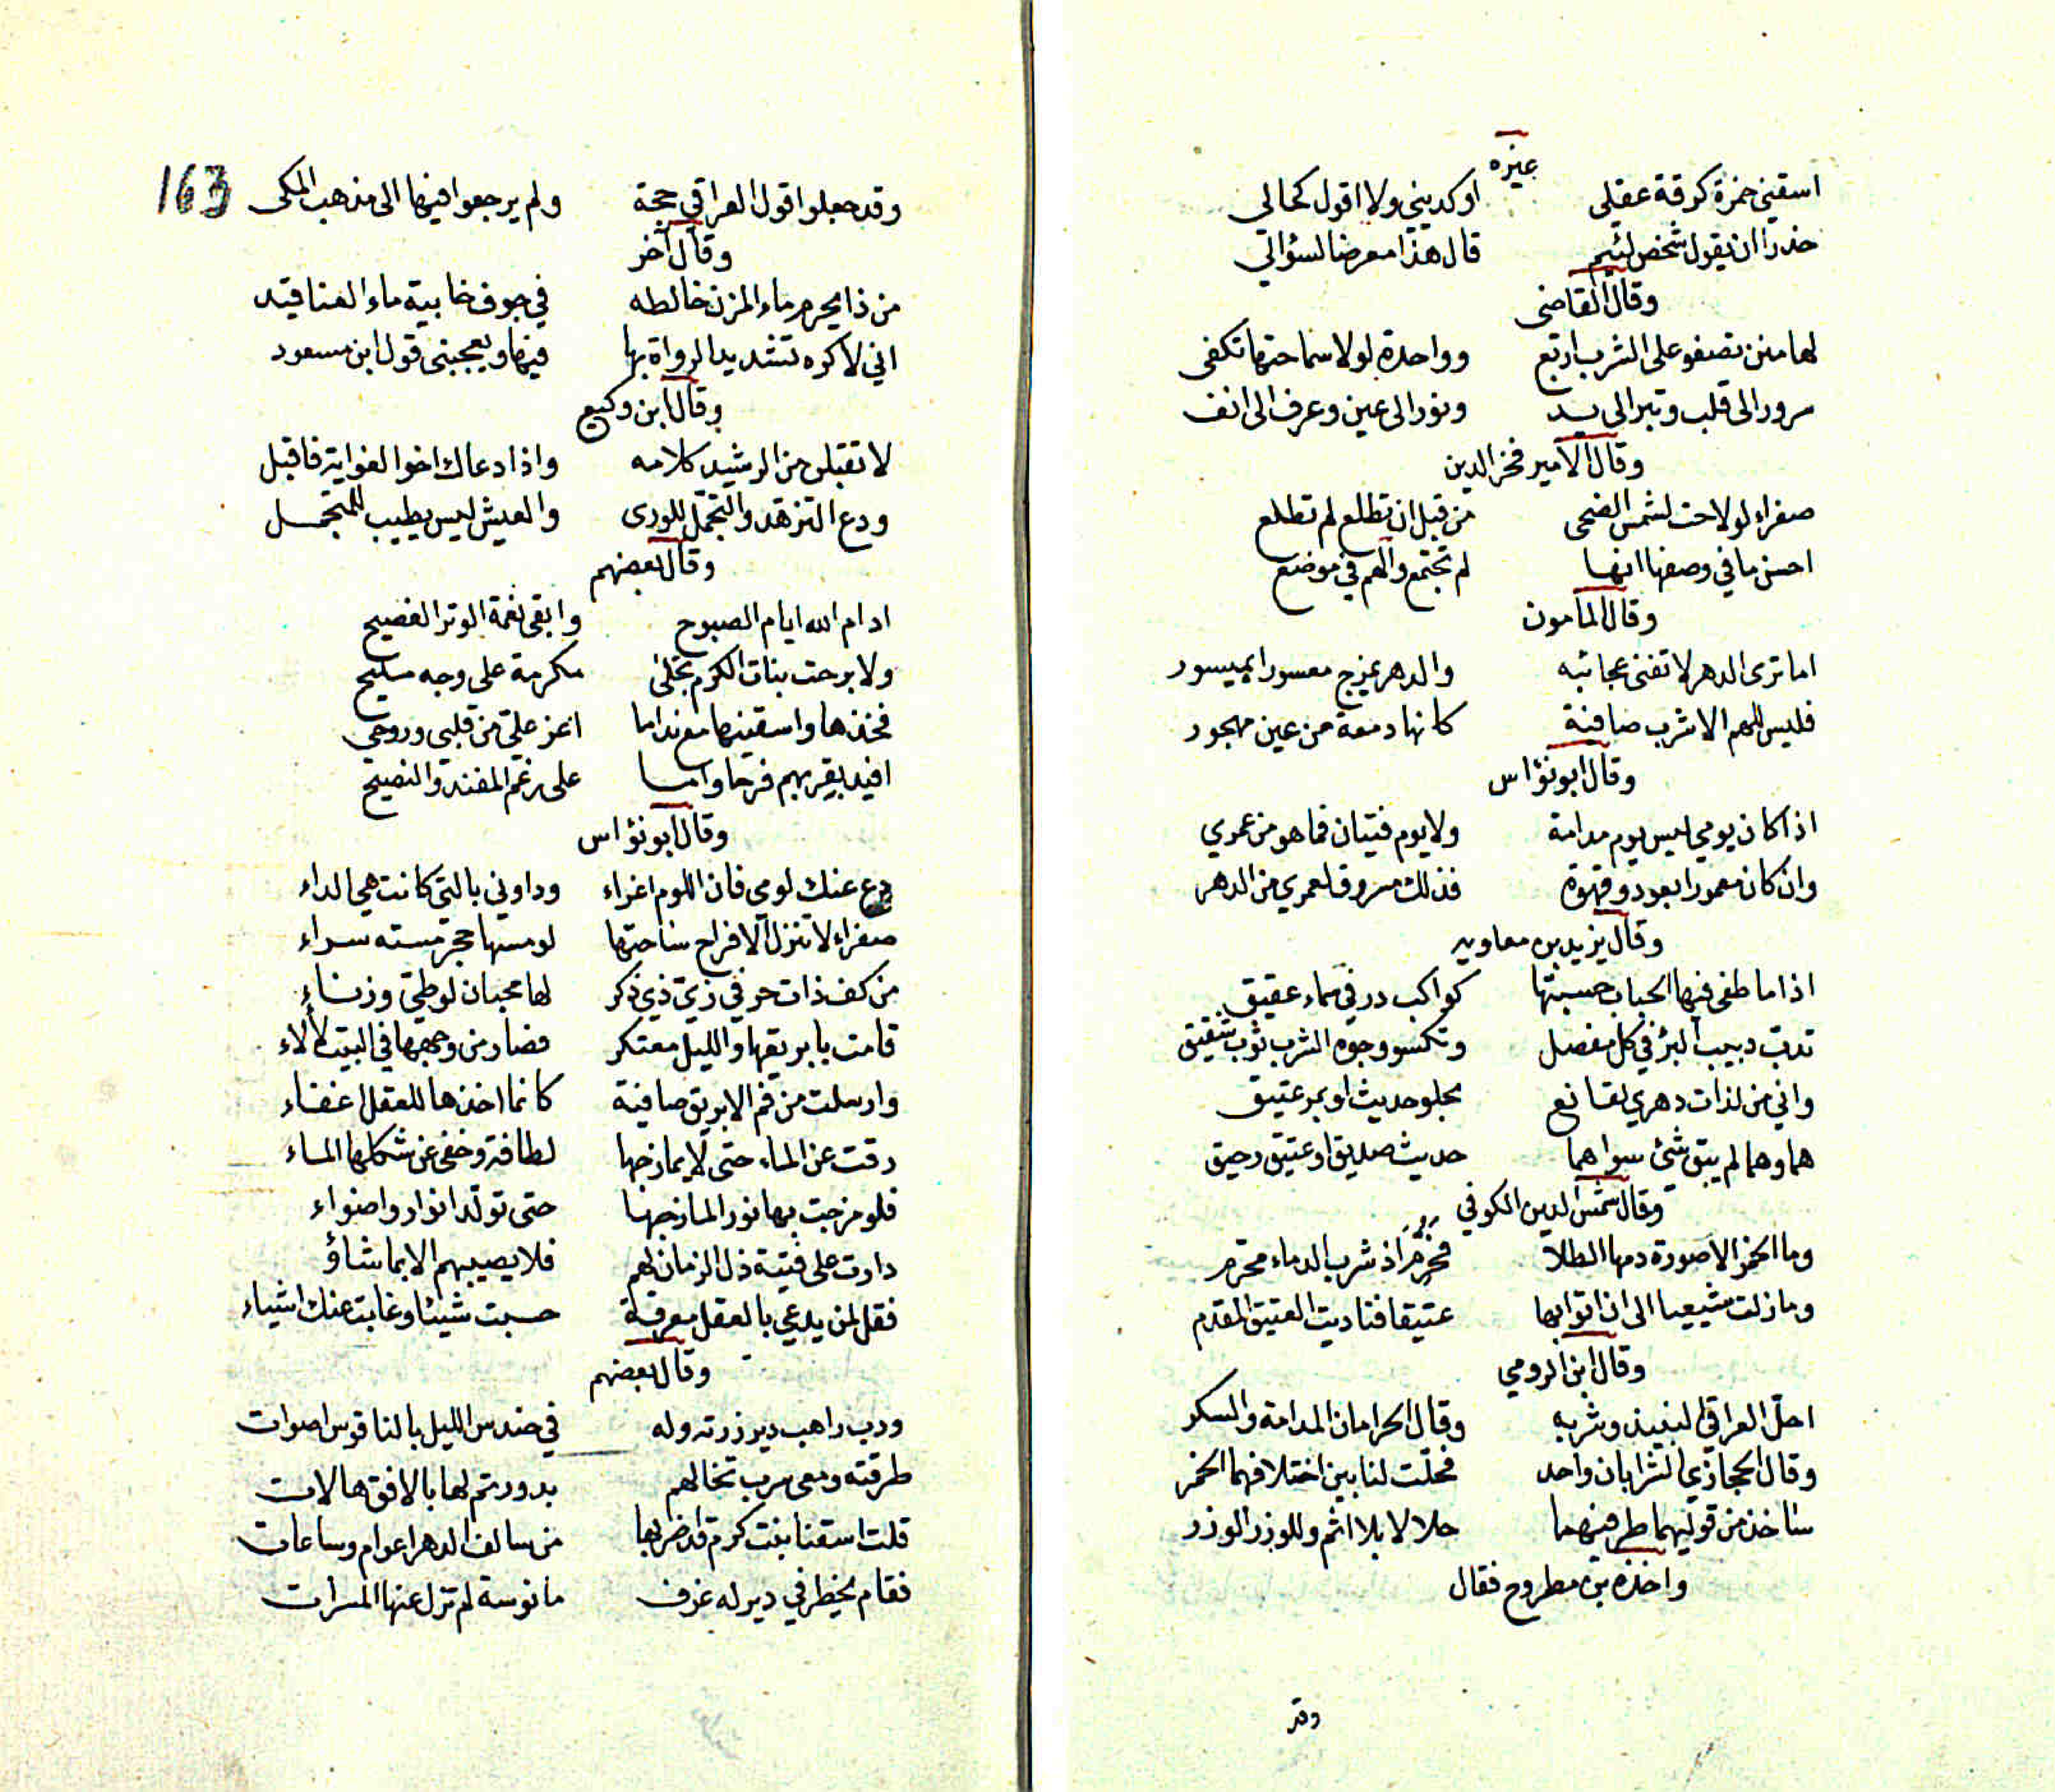 غيره
اسقيني خمرة كرقة عقلي اوكديني ولا اقول كحالي
حذرا ان يقول شخص لئيم قال هذا معرضا لسؤالي
وقال القاضى
لها منن تصفو على الشرب اربع وواحدة لولا سماحتها تكفى
سرور الى قلب وتبر الى يد ونور الى عين وعرف الى انف
وقال الامير فخر الدين
صفراء لو لاحت لشمس الضحى من قبل ان تطلع لم تطلع
احسن ما في وصفها انها لم تجتمع والهم في موضع
وقال المأمون
اما ترى الدهر لا تفنى عجائبه والدهر يمزج معسورا بميسور
فليس للهم الا شرب صافية كانها دمعة من عين مهجور
وقال ابو نؤاس
اذا كان يومي ليس يوم مدامة ولا يوم فتيان فما هو من عمري
وان كان معمورا بعود وقهوة فذلك مسروق لعمري من الدهر
وقال يزيد بن معاويه
اذا ما طفى فيها الحباب حسبتها كواكب در في سماء عقيق
تدبّ دبيب البرّ في كل مفصل وتكسو وجوه الشرب ثوب شقيق
واني من لذات دهري لقانع بحلو حديث او بمر عتيق
هما وهما لم يبق شئ سواهما حديث صديق او عتيق رحيق
وقال شمس الدين الكوفي
وما الخمر الا صورة دمها الطلا فحرّم اذ شرب الدماء محرّم
وما زلت شيعيا الى ان اتوا بها عتيقا فناديت العتيق المقدم
وقال ابن الرومي
احلّ العراقي النبيذ وشربه وقال الحرامان المدامة والسكر
وقال الحجازيّ الشرابان واحد فحلّت لنا بين اختلافهما الخمر
ساخذ من قوليهما طرفيهما حلالا بلا اثم وللوزر الوزر
واخذه بن مطروح فقال
وقد
163
وقد جعلوا قول العراقي حجة ولم يرجعوا فيها الى مذهب المكى
وقال آخر
من ذا يحرم ماء المزن خالطه في جوف خابية ماء العناقيد
اني لاكره تشديد الرواة بها فيها ويعجبنى قول ابن مسعود
وقال ابن وكيع
لا تقبلن من الرشيد كلامه واذا دعاك اخو الغواية فاقبل
ودع التزهد والتجمّل للورى والعيش ليس يطيب للمتجمل
وقال بعضهم
ادام الله ايام الصبوح وابقى نغمة الوتر الفصيح
ولا برحت بنات الكرم تجلى مكرمة على وجه مليح
فخذها واسقينها مع نداما اعز عليّ من قلبى وروحى
افيد بقربهم فرحا وامسا على رغم المفند والنصيح
وقال ابو نؤاس
دع عنك لومي فان اللوم اغراء وداوني بالتي كانت هي الداء
صفراء لا تنزل الافراح ساحتها لو مسها حجر مسته سراء
من كف ذات حر في زيّ ذي ذكر لها محبان لوطيّ وزناء
قامت بابريقها والليل معتكر فصار من وجهها في البيت لألاء
وارسلت من فم الابريق صافية كانما اخذها للعقل اغفاء
رقت عن الماء حتى لا يمازجها لطافة وخفى عن شكلها الماء
فلو مزجت بها نورا لمازجها حتى تولّد انوار واضواء
دارت على فتية ذل الزمان لهم فلا يصيبهم الا بما شاؤ
فقل لمن يدعي بالعقل معرفة حسبت شيئا وغابت عنك اشياء
وقال بعضهم
ورب راهب دير زرته وله في حندس الليل بالناقوس اصوات
طرقته ومعى سرب تخالهم بدور تم لها بالافق هالات
قلت اسقنا بنت كرم قد ضر بها من سالف الدهر اعوام وساعات
فقام يخطر في دير له غرف مانوسة لم تزل عنها المسرات